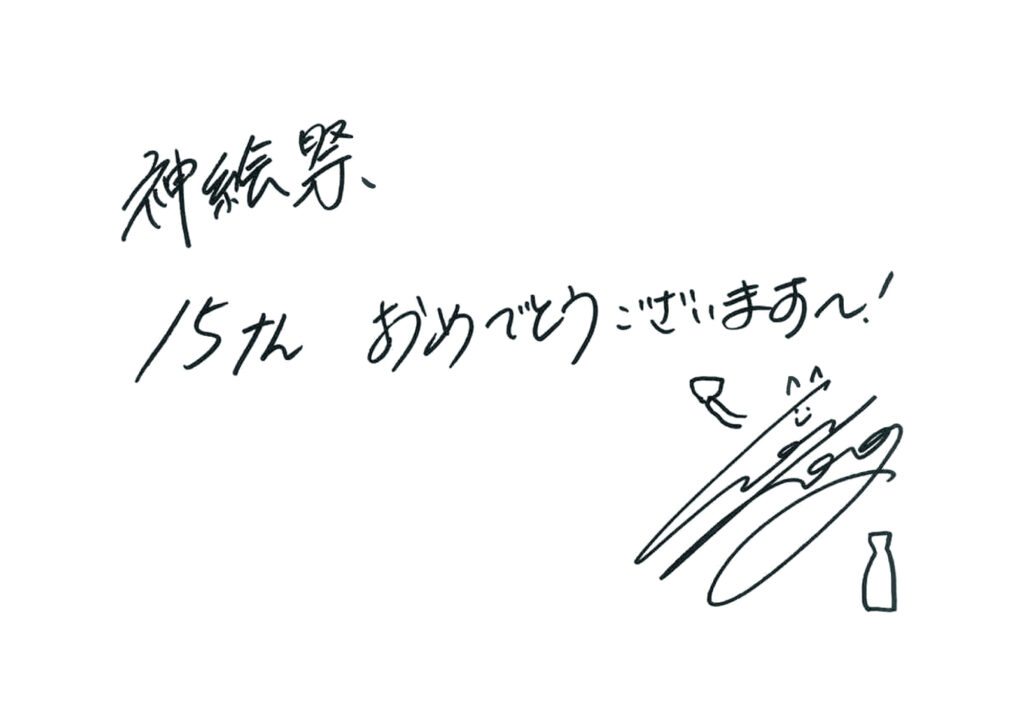 神絵祭、
15ナん おめでとうございます〜!